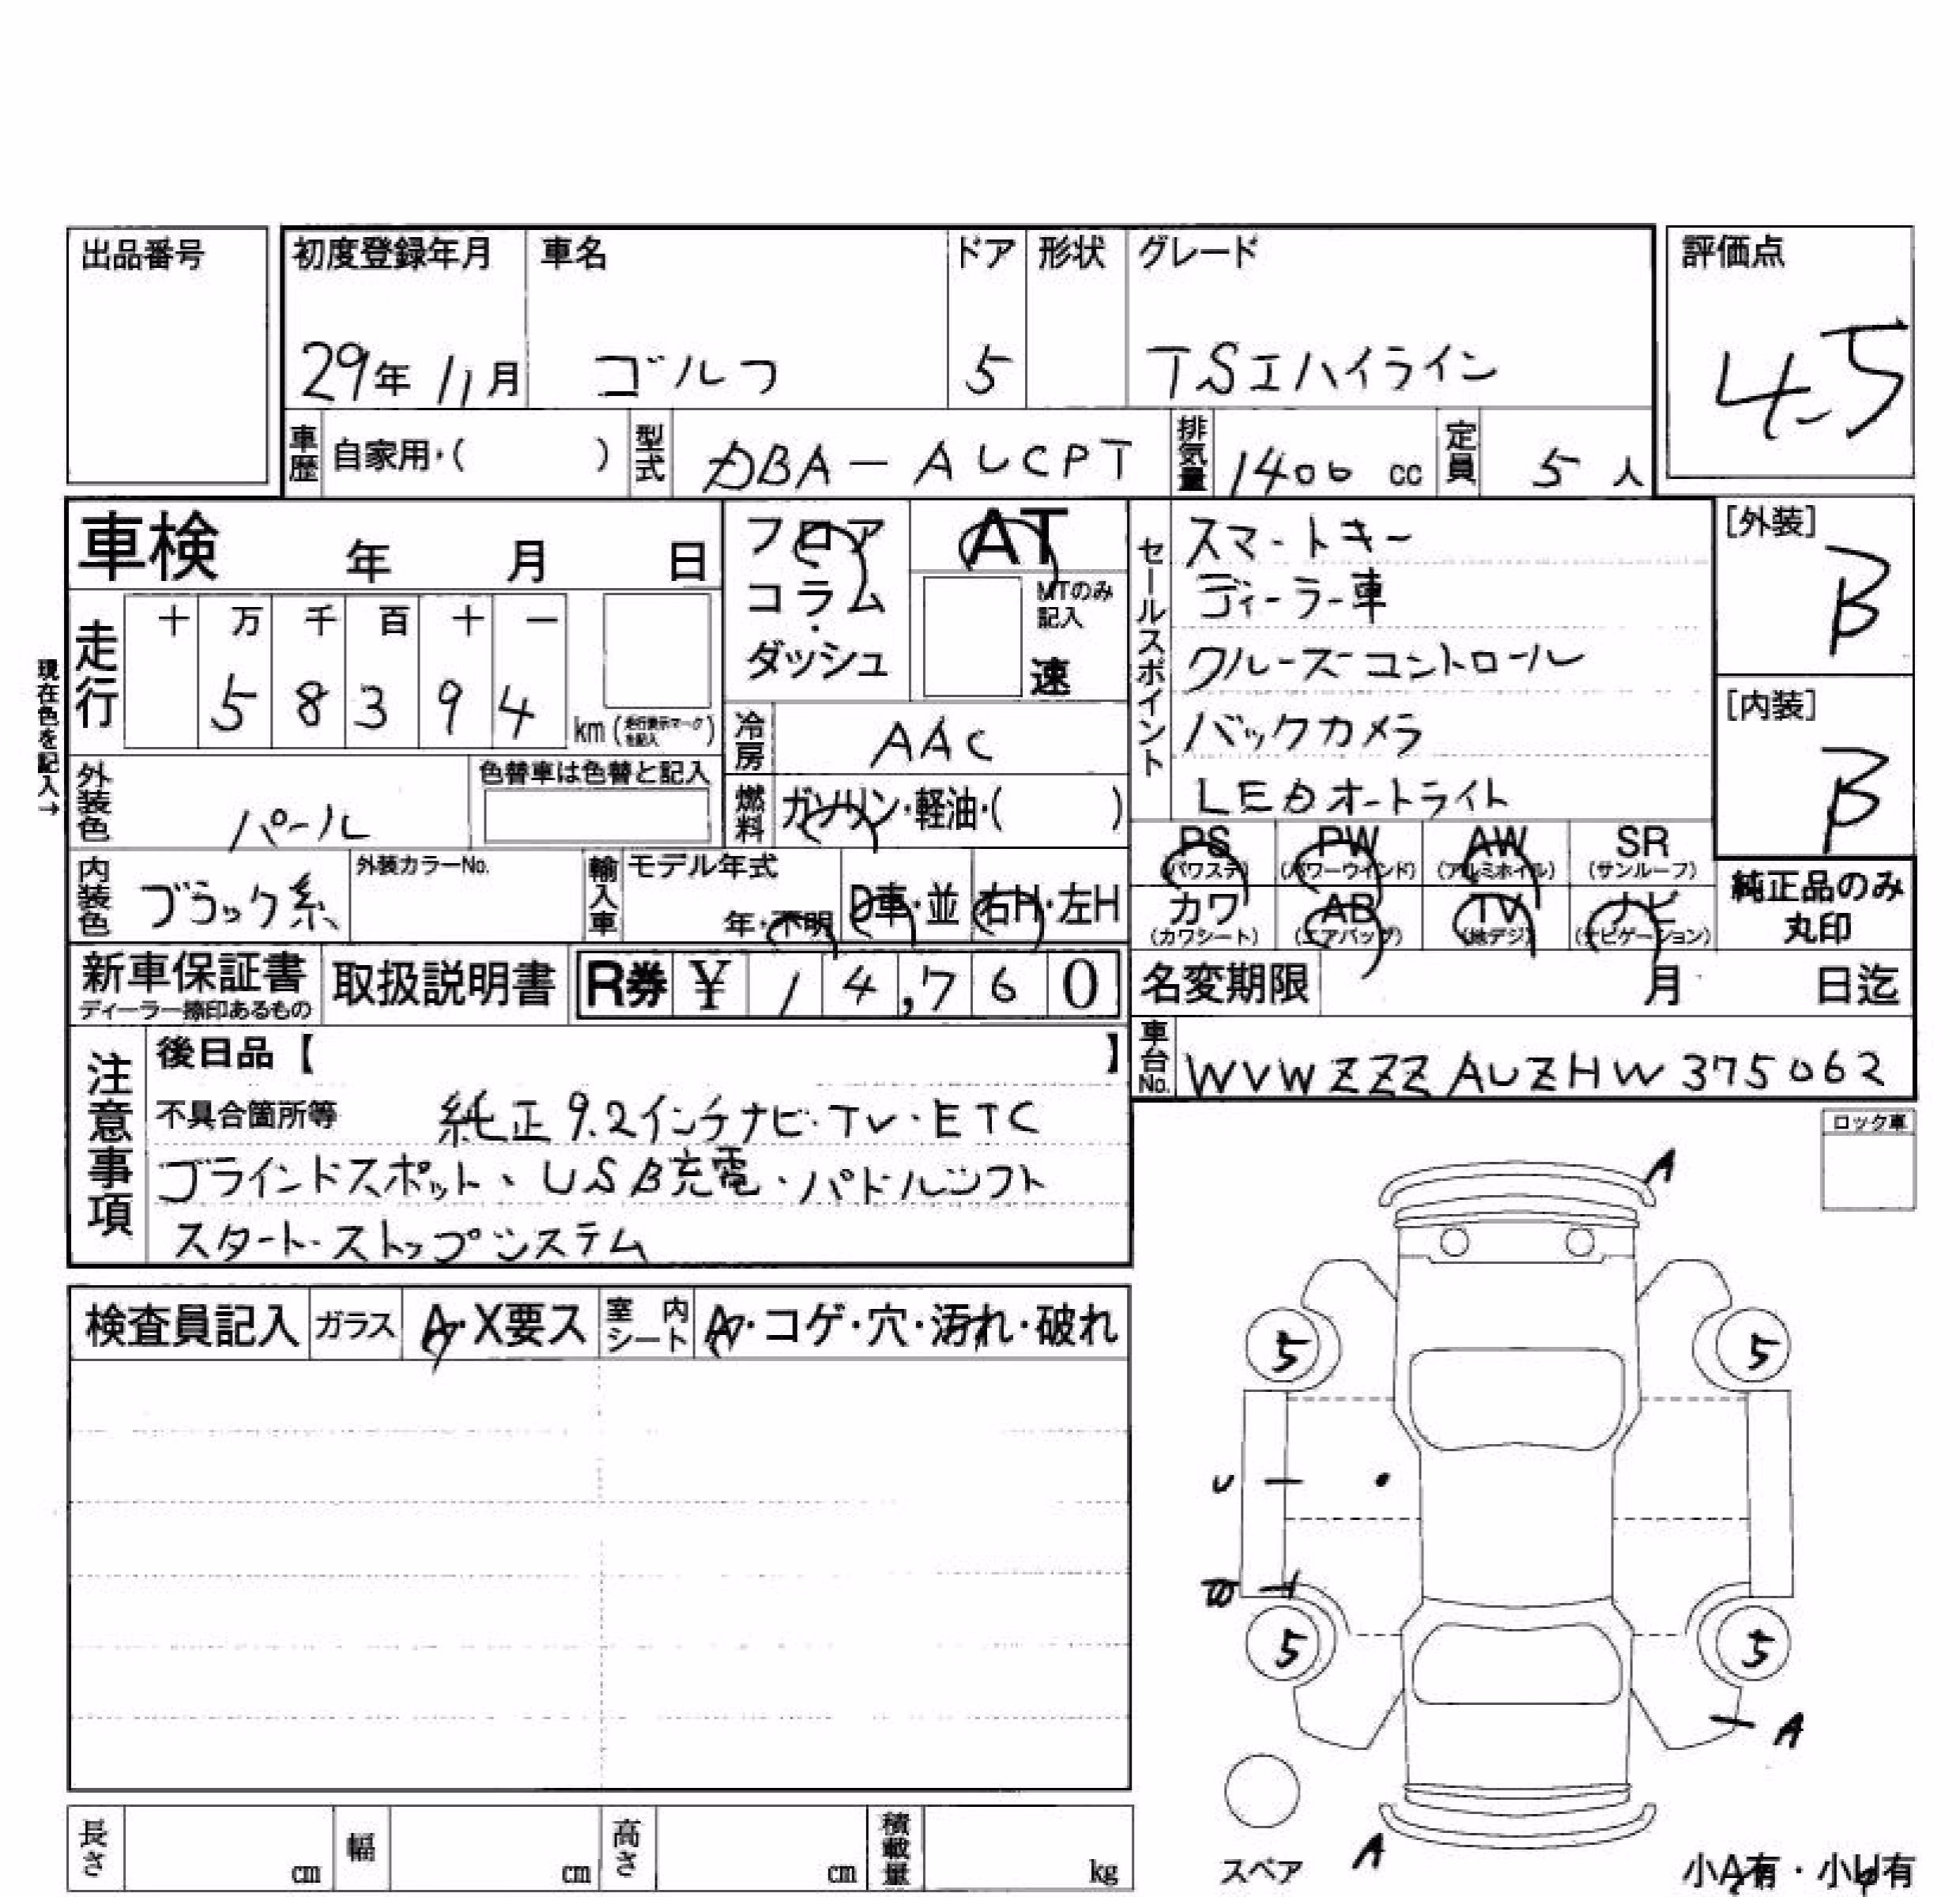 出品番号
初度登録年月 車名 ドア 形状 グレード 評価点
29年 11月 ゴルフ 5 TSIハイライン 4.5
車歴 自家用・( ) 型式 DBA-AUCPT 排気量 1400 cc 定員 5 人
車検 年 月 日
フロア
コラム・
ダッシュ
AT
MTのみ記入
速
走行 十 万 千 百 十 一
5 8 3 9 4 km (走行表示マークを記入)
現在色を記入→
冷房 AAC
外装色 パール 色替車は色替と記入
燃料 ガソリン・軽油・( )
内装色 ブラック系 外装カラーNo. 輸入車 モデル年式 年・不明 D車・並 右H・左H
新車保証書 ディーラー捺印あるもの 取扱説明書 R券 ¥ 1 4,7 6 0
セールスポイント
スマートキー
ディーラー車
クルーズコントロール
バックカメラ
LEDオートライト
[外装] B
[内装] B
PS (パワステ) PW (パワーウインド) AW (アルミホイル) SR (サンルーフ)
カワ (カワシート) AB (エアバッグ) TV (地デジ) ナビ (ナビゲーション)
純正品のみ丸印
名変期限 月 日迄
車台No. WVWZZZAUZHW375062
注意事項
後日品【 】
不具合箇所等 純正9.2インチナビ・TV・ETC
ブラインドスポット、USB充電・パドルシフト
スタート・ストップシステム
ロック車
検査員記入 ガラス A・X要ス 室内シート A・コゲ・穴・汚れ・破れ
A
5 5
U
5 5
A
A
スペア
小A有・小U有
長さ cm 幅 cm 高さ cm 積載量 kg